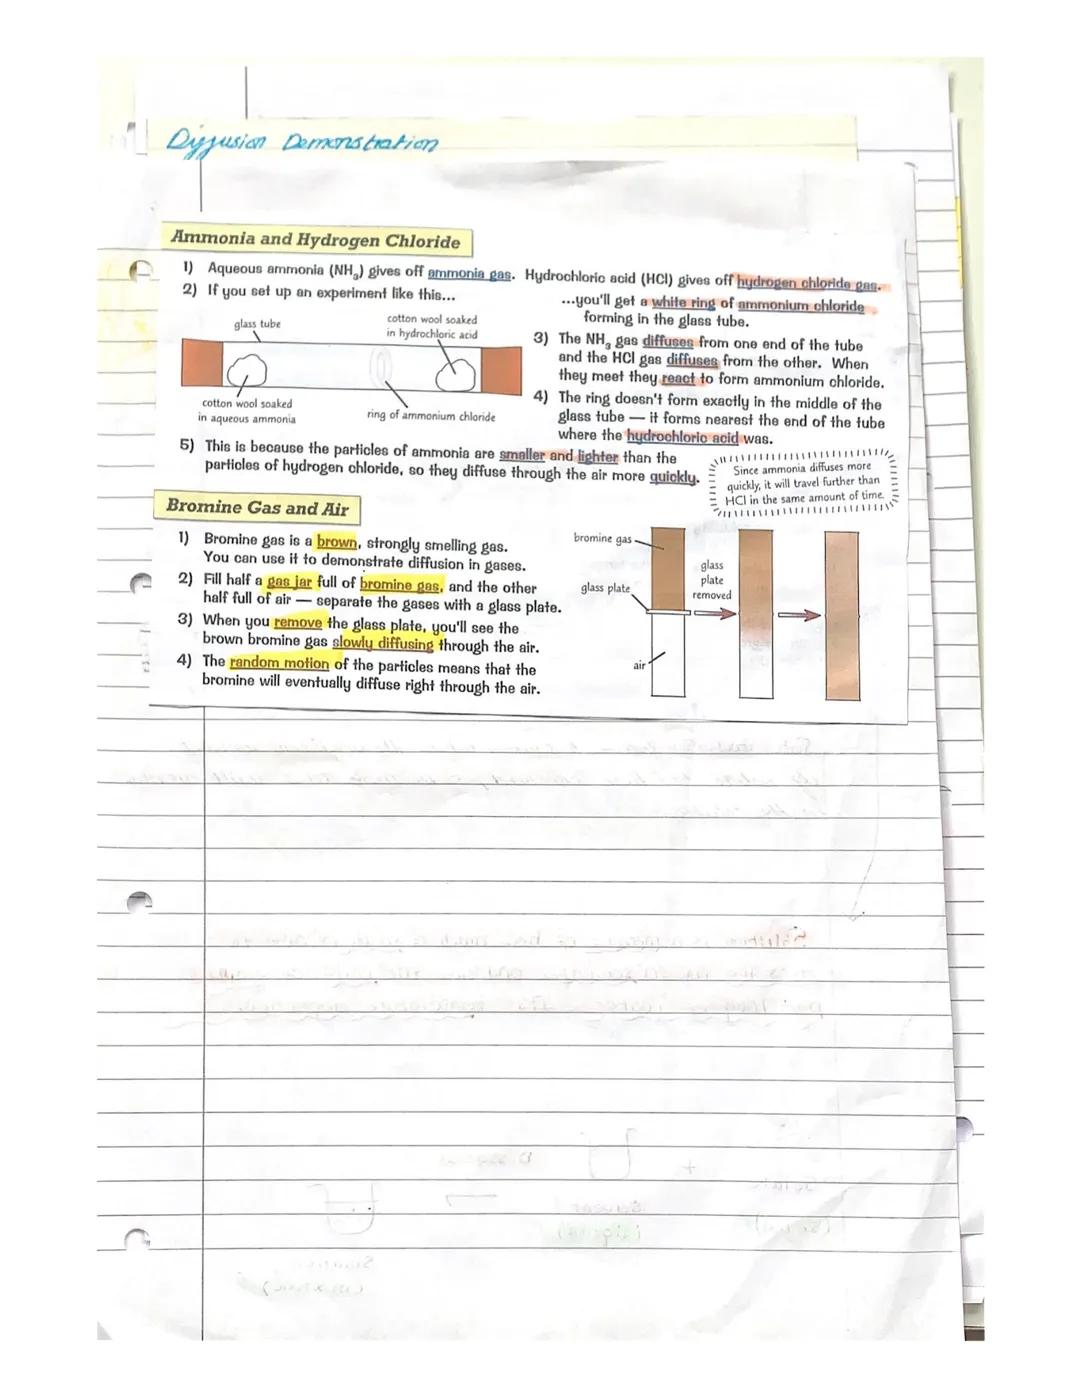 Diffusion Demonstration
Ammonia and Hydrogen Chloride
1) Aqueous ammonia (NH₃) gives off ammonia gas. Hydrochloric acid (HCl) gives off hydrogen chloride gas.
2) If you set up an experiment like this...
...you'll get a white ring of ammonium chloride
forming in the glass tube.
glass tube
cotton wool soaked
in hydrochloric acid
cotton wool soaked
in aqueous ammonia
ring of ammonium chloride
3) The NH₃ gas diffuses from one end of the tube
and the HCl gas diffuses from the other. When
they meet they react to form ammonium chloride.
4) The ring doesn't form exactly in the middle of the
glass tube — it forms nearest the end of the tube
where the hydrochloric acid was.
5) This is because the particles of ammonia are smaller and lighter than the
particles of hydrogen chloride, so they diffuse through the air more quickly.
Since ammonia diffuses more
quickly, it will travel further than
HCl in the same amount of time.
Bromine Gas and Air
1) Bromine gas is a brown, strongly smelling gas.
You can use it to demonstrate diffusion in gases.
2) Fill half a gas jar full of bromine gas, and the other
half full of air — separate the gases with a glass plate.
3) When you remove the glass plate, you'll see the
brown bromine gas slowly diffusing through the air.
4) The random motion of the particles means that the
bromine will eventually diffuse right through the air.
bromine gas
glass plate
air
glass
plate
removed